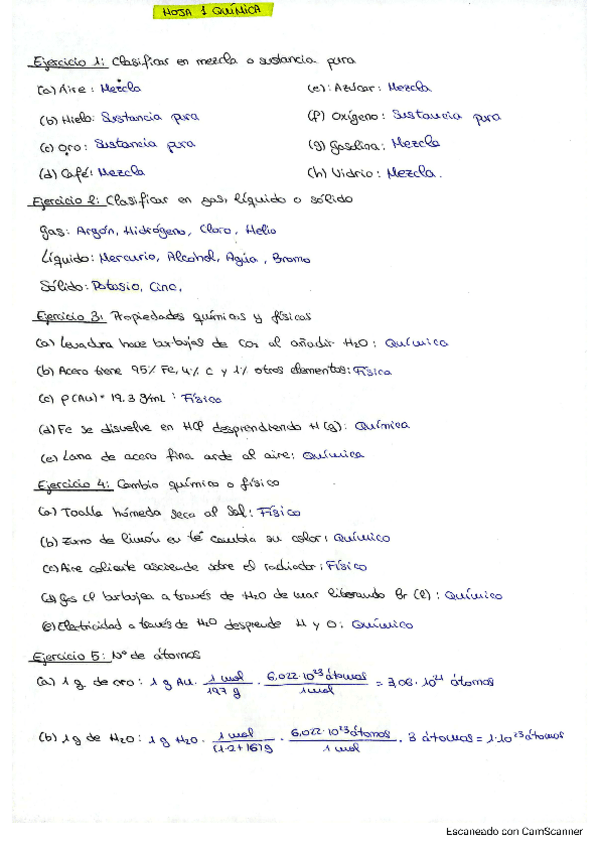 HOJA 1 QUÍMICA
Ejercicio 1: Clasificar en mezcla o sustancia pura
(a) Aire: Mezcla (e): Azúcar: Mezcla
(b) Hielo: Sustancia pura (f) Oxígeno: Sustancia pura
(c) Oro: Sustancia pura (g) Gasolina: Mezcla
(d) Café: Mezcla (h) Vidrio: Mezcla.
Ejercicio 2: Clasificar en gas, líquido o sólido
Gas: Argón, Hidrógeno, Cloro, Helio
Líquido: Mercurio, Alcohol, Agua, Bromo
Sólido: Potasio, Cinc,
Ejercicio 3: Propiedades químicas y físicas
(a) Levadura hace burbujas de CO2 al añadir H2O: Química
(b) Acero tiene 95% Fe, 4% C y 1% otros elementos: Física
(c) ρ(Au) = 19.3 g/mL: Física
(d) Fe se disuelve en HCl desprendiendo H (g): Química
(e) Lana de acero fina arde al aire: Química
Ejercicio 4: Cambio químico o físico
(a) Toalla húmeda seca al sol: Físico
(b) Zumo de limón en té cambia su color: Químico
(c) Aire caliente asciende sobre el radiador: Físico
(d) Gas Cl burbujea a través de H2O de mar liberando Br (l): Químico
(e) Electricidad a través de H2O desprende H y O: Químico
Ejercicio 5: Nº de átomos
(a) 1 g de oro: 1 g Au · 1 mol / 197 g · 6,022·10^23 átomos / 1 mol = 3,06 · 10^21 átomos
(b) 1 g de H2O: 1 g H2O · 1 mol / (1·2+16) g · 6,022·10^23 átomos / 1 mol · 3 átomos = 1·10^23 átomos
Escaneado con CamScanner